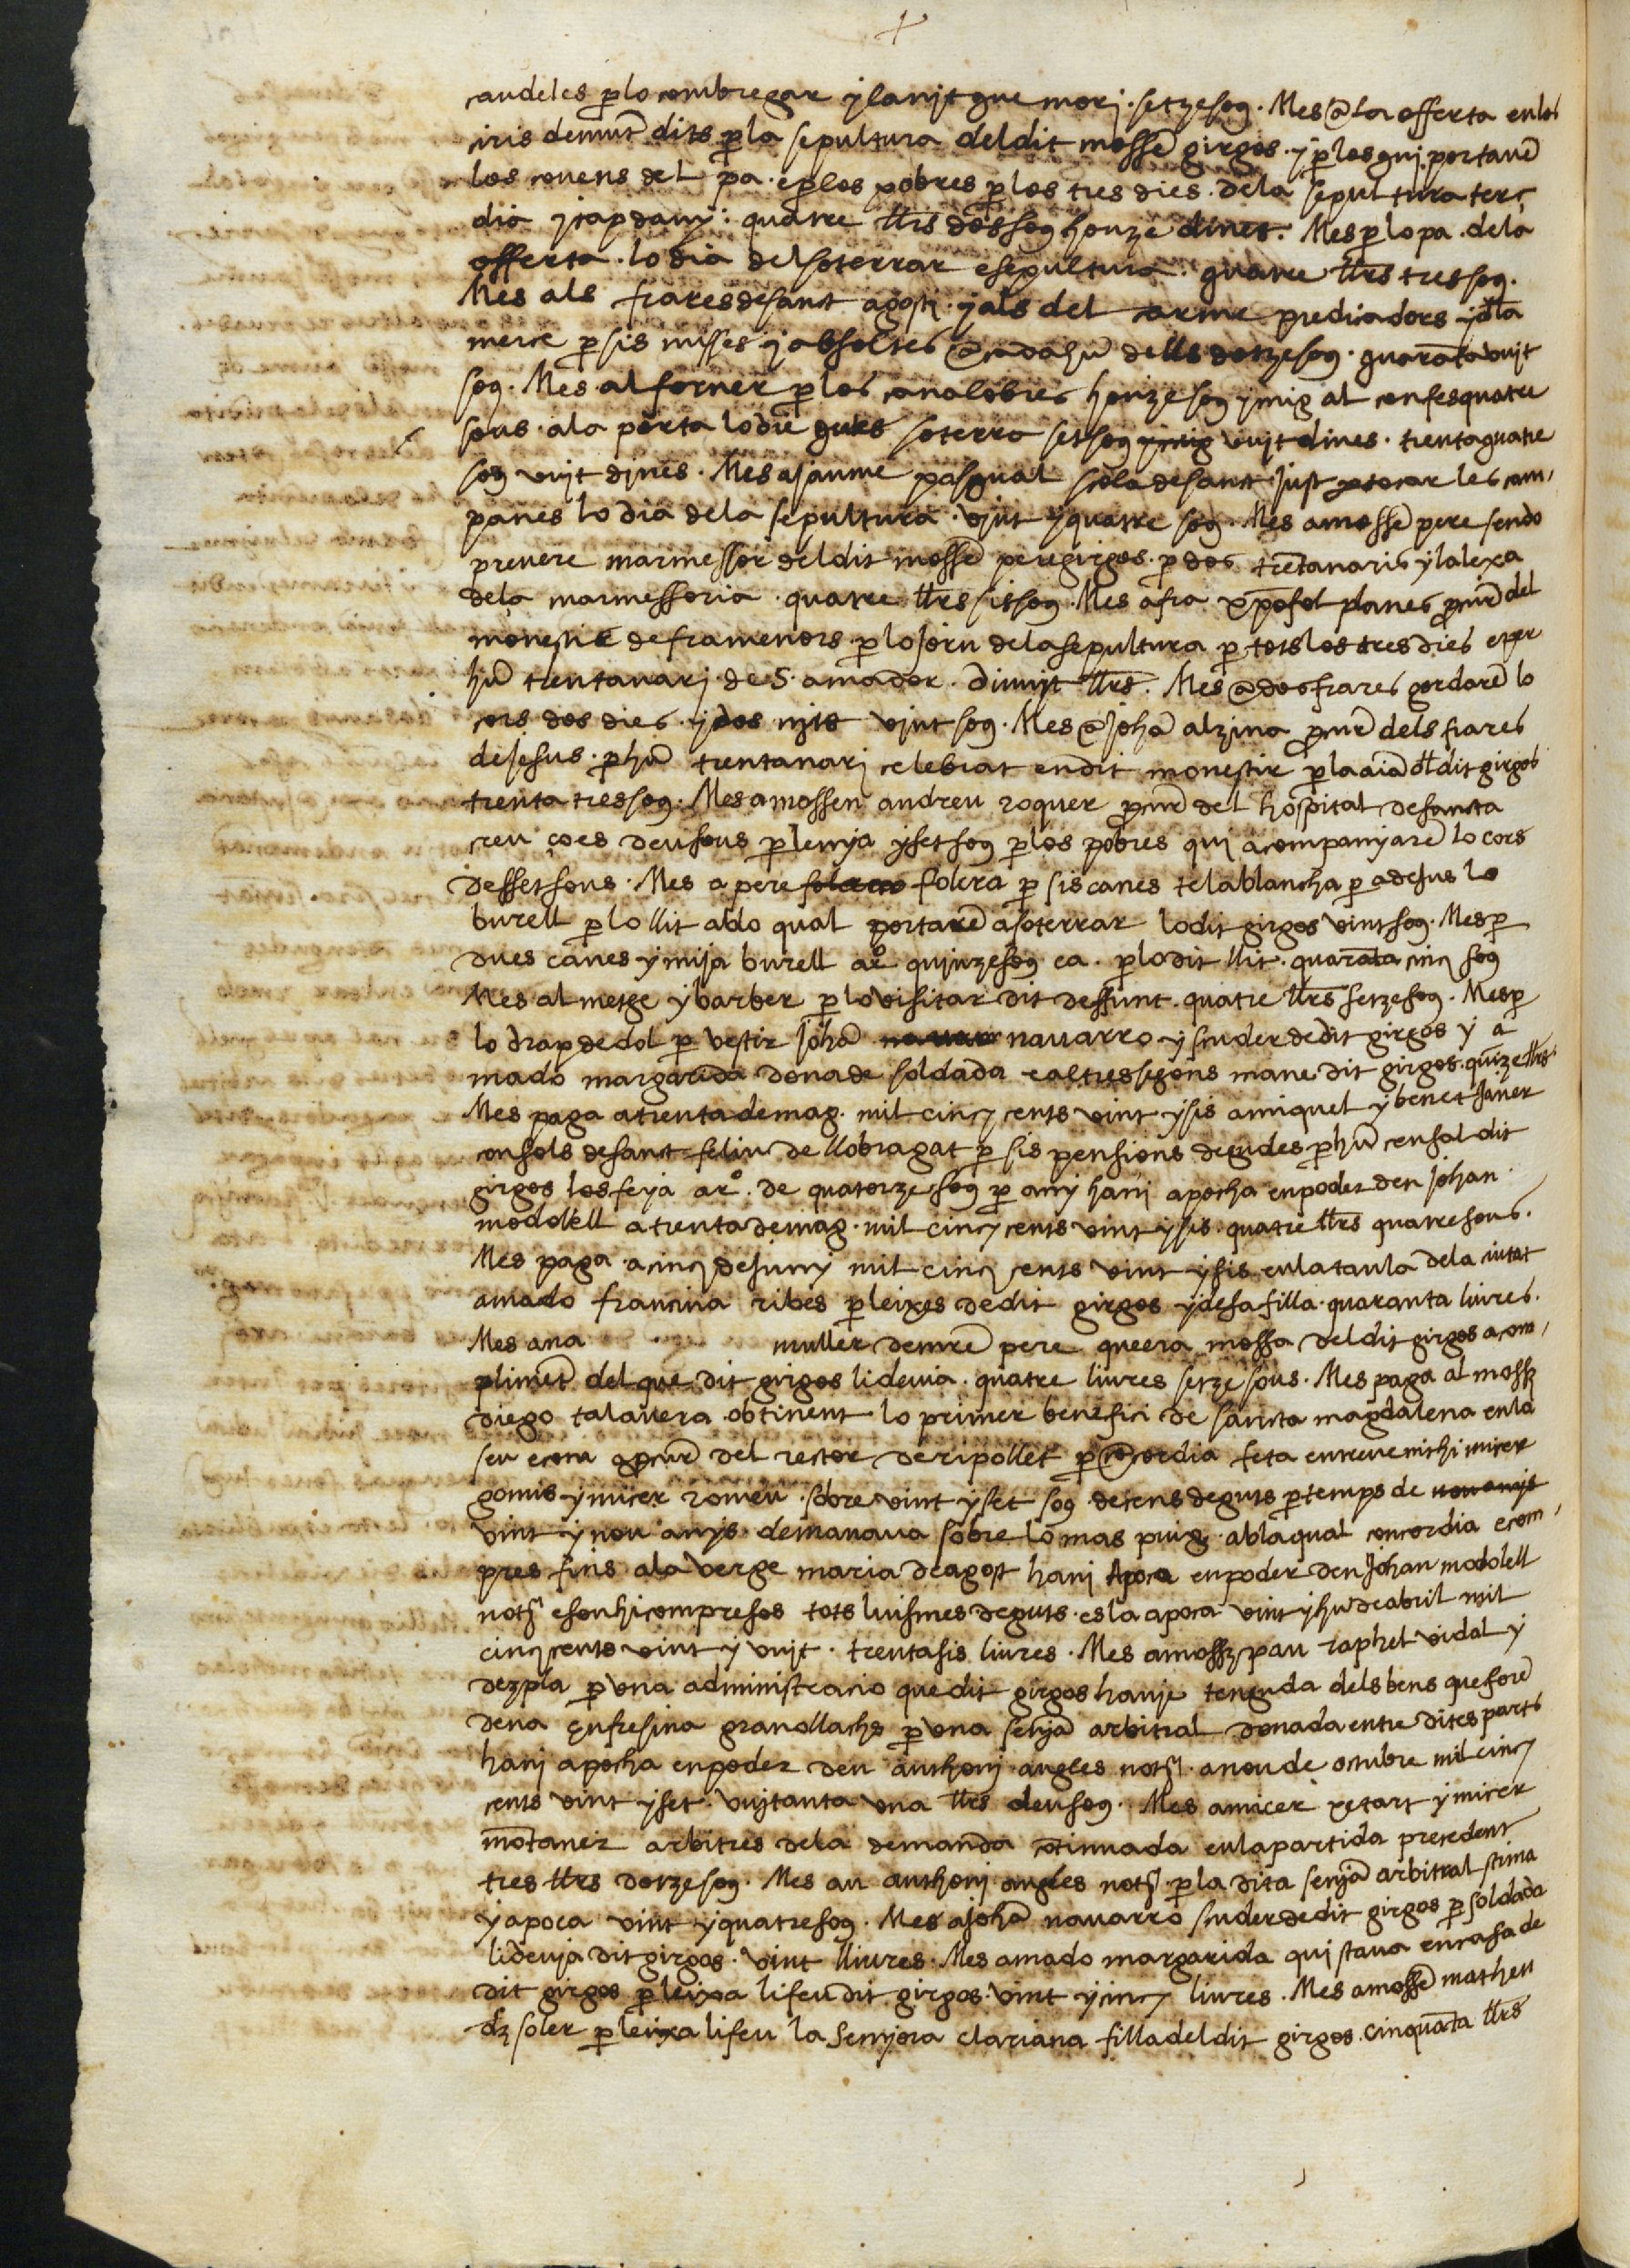 +
candeles p lo combregar y la nit que mori. setze sos. Mes a la offerta en los
ciris demunt dits p la sepultura del dit mosse girgos. y p los qui portave
los covens del pa. e p los pobres p los tres dies. de la sepultura terç
dia y cap dany: quatre llrs dos sos honze dines. Mes p lo pa. de la
offerta. lo dia del soterrar e sepultura. quatre llrs tres sos.
Mes als frares de sant agosti. y als del carme predicadors y d la
merce p sis misses y absoltes a cada hu dells dotze sos. quarata vuit
sos. Mes al forner p los canalobres honze sos y mig al confes quatre
sous. a la porta lo die ques soterra set sos y mig vuit dines. trenta quatre
sos vuit dines. Mes a jaume pasqual scola de sanct just p tocar les cam,
panes lo dia de la sepultura. vint y quatre sos. Mes a mosse pere sendo
prevere marmessor del dit mosse pere girgos. p dos tretanaris y la lexa
de la marmessoria. quatre llrs sis sos. Mes a fra xpofol planes pcur del
monestir de framenors p lo jorn de la sepultura p tots los tres dies e per
hu trentanari. de S. amador. divuyt llrs. Mes a dos frares gordare lo
cors dos dies. y dos nits vint sos. Mes a joha alzina pcur dels frares
de jesus. p hu trentanari celebrat en dit monestir p la aia dl dit girgos
trenta tres sos. Mes a mossen andreu roquer pcur del hospital de sancta
creu ço es deu sous p lenya y set sos p los pobres qui acompanyare lo cors
desset sous. Mes a pere solera p sis canes tela blancha p a dejus lo
burell p lo llit ab lo qual portare a soterrar lo dit girgos vint sos. Mes p
dues canes y mija burell a ro quinze sos ca. p lo dit llit. quarata cinc sos
Mes al metge y barber p lo visitar dit deffunt. quatre llrs setze sos. Mes p
lo drap de dol p vestir joha navarro y scuder de dit girgos y a
mado margarida dona de soldada e altres segons mane dit girgos. quize llrs
Mes paga a trenta de mag. mil cinc cents vint y sis a miquel y benet Janer
consols de sanct feliu de llobragat p sis pensions degudes p hu censal dit
girgos los feya a ro. de quatorze sos p any hani apocha en poder den johan
modolell a trenta de mag. mil cinc cents vint y sis. quatre llrs quatre sous.
Mes paga a cinc de juny mil cinc cents vint y sis en la taula de la ciutat
a mado francina ribes p leixes de dit girgos y de sa filla. quaranta liures.
Mes a na muller de mre pere que era mossa del dit girgos a com,
plimet del que dit girgos li devia. quatre liures setze sous. Mes paga al moss
diego talavera obtinent lo primer benefici de sancta magdalena en la
seu e com a pcur del rector de ripollet p cocordia feta entrevenint hi micer
gomis y micer romeu. sobre vint y set sos de cens deguts p temps de nou anys
vint y nou anys demanava sobre lo mas puig. ab la qual concordia e com,
pres fins a la verge maria de agost hani Apoca en poder den johan modolell
not e son hi compresos tots luismes deguts. es la apoca vint y hu de abril mil
cinc cents vint y vuit. trenta sis liures. Mes a moss pau raphel vidal y
dezpla p una administracio que dit girgos havie tenguda dels bens que fore
de na Eufresina granollachs p una senja arbitral donada entre dites parts
hani apocha en poder den anthoni angles not. a nou de octubre mil cinc
cents vint y set. vuytanta una llrs deu sos. Mes a micer xetart y micer
motaner arbitres de la demanda cotinuada en la partida precedent
tres llrs dotze sos. Mes an anthoni angles not. p la dita senja arbitral scriva
y apoca vint y quatre sos. Mes a joha navarro scuder de dit girgos p soldada
li devia dit girgos. vint lliures. Mes a mado margarida qui stava en casa de
dit girgos p leixa li feu dit girgos. vint y cinc liures. Mes a mosse matheu
dz soler p leixa li feu la Senyora clariana filla del dit girgos. cinquata llrs